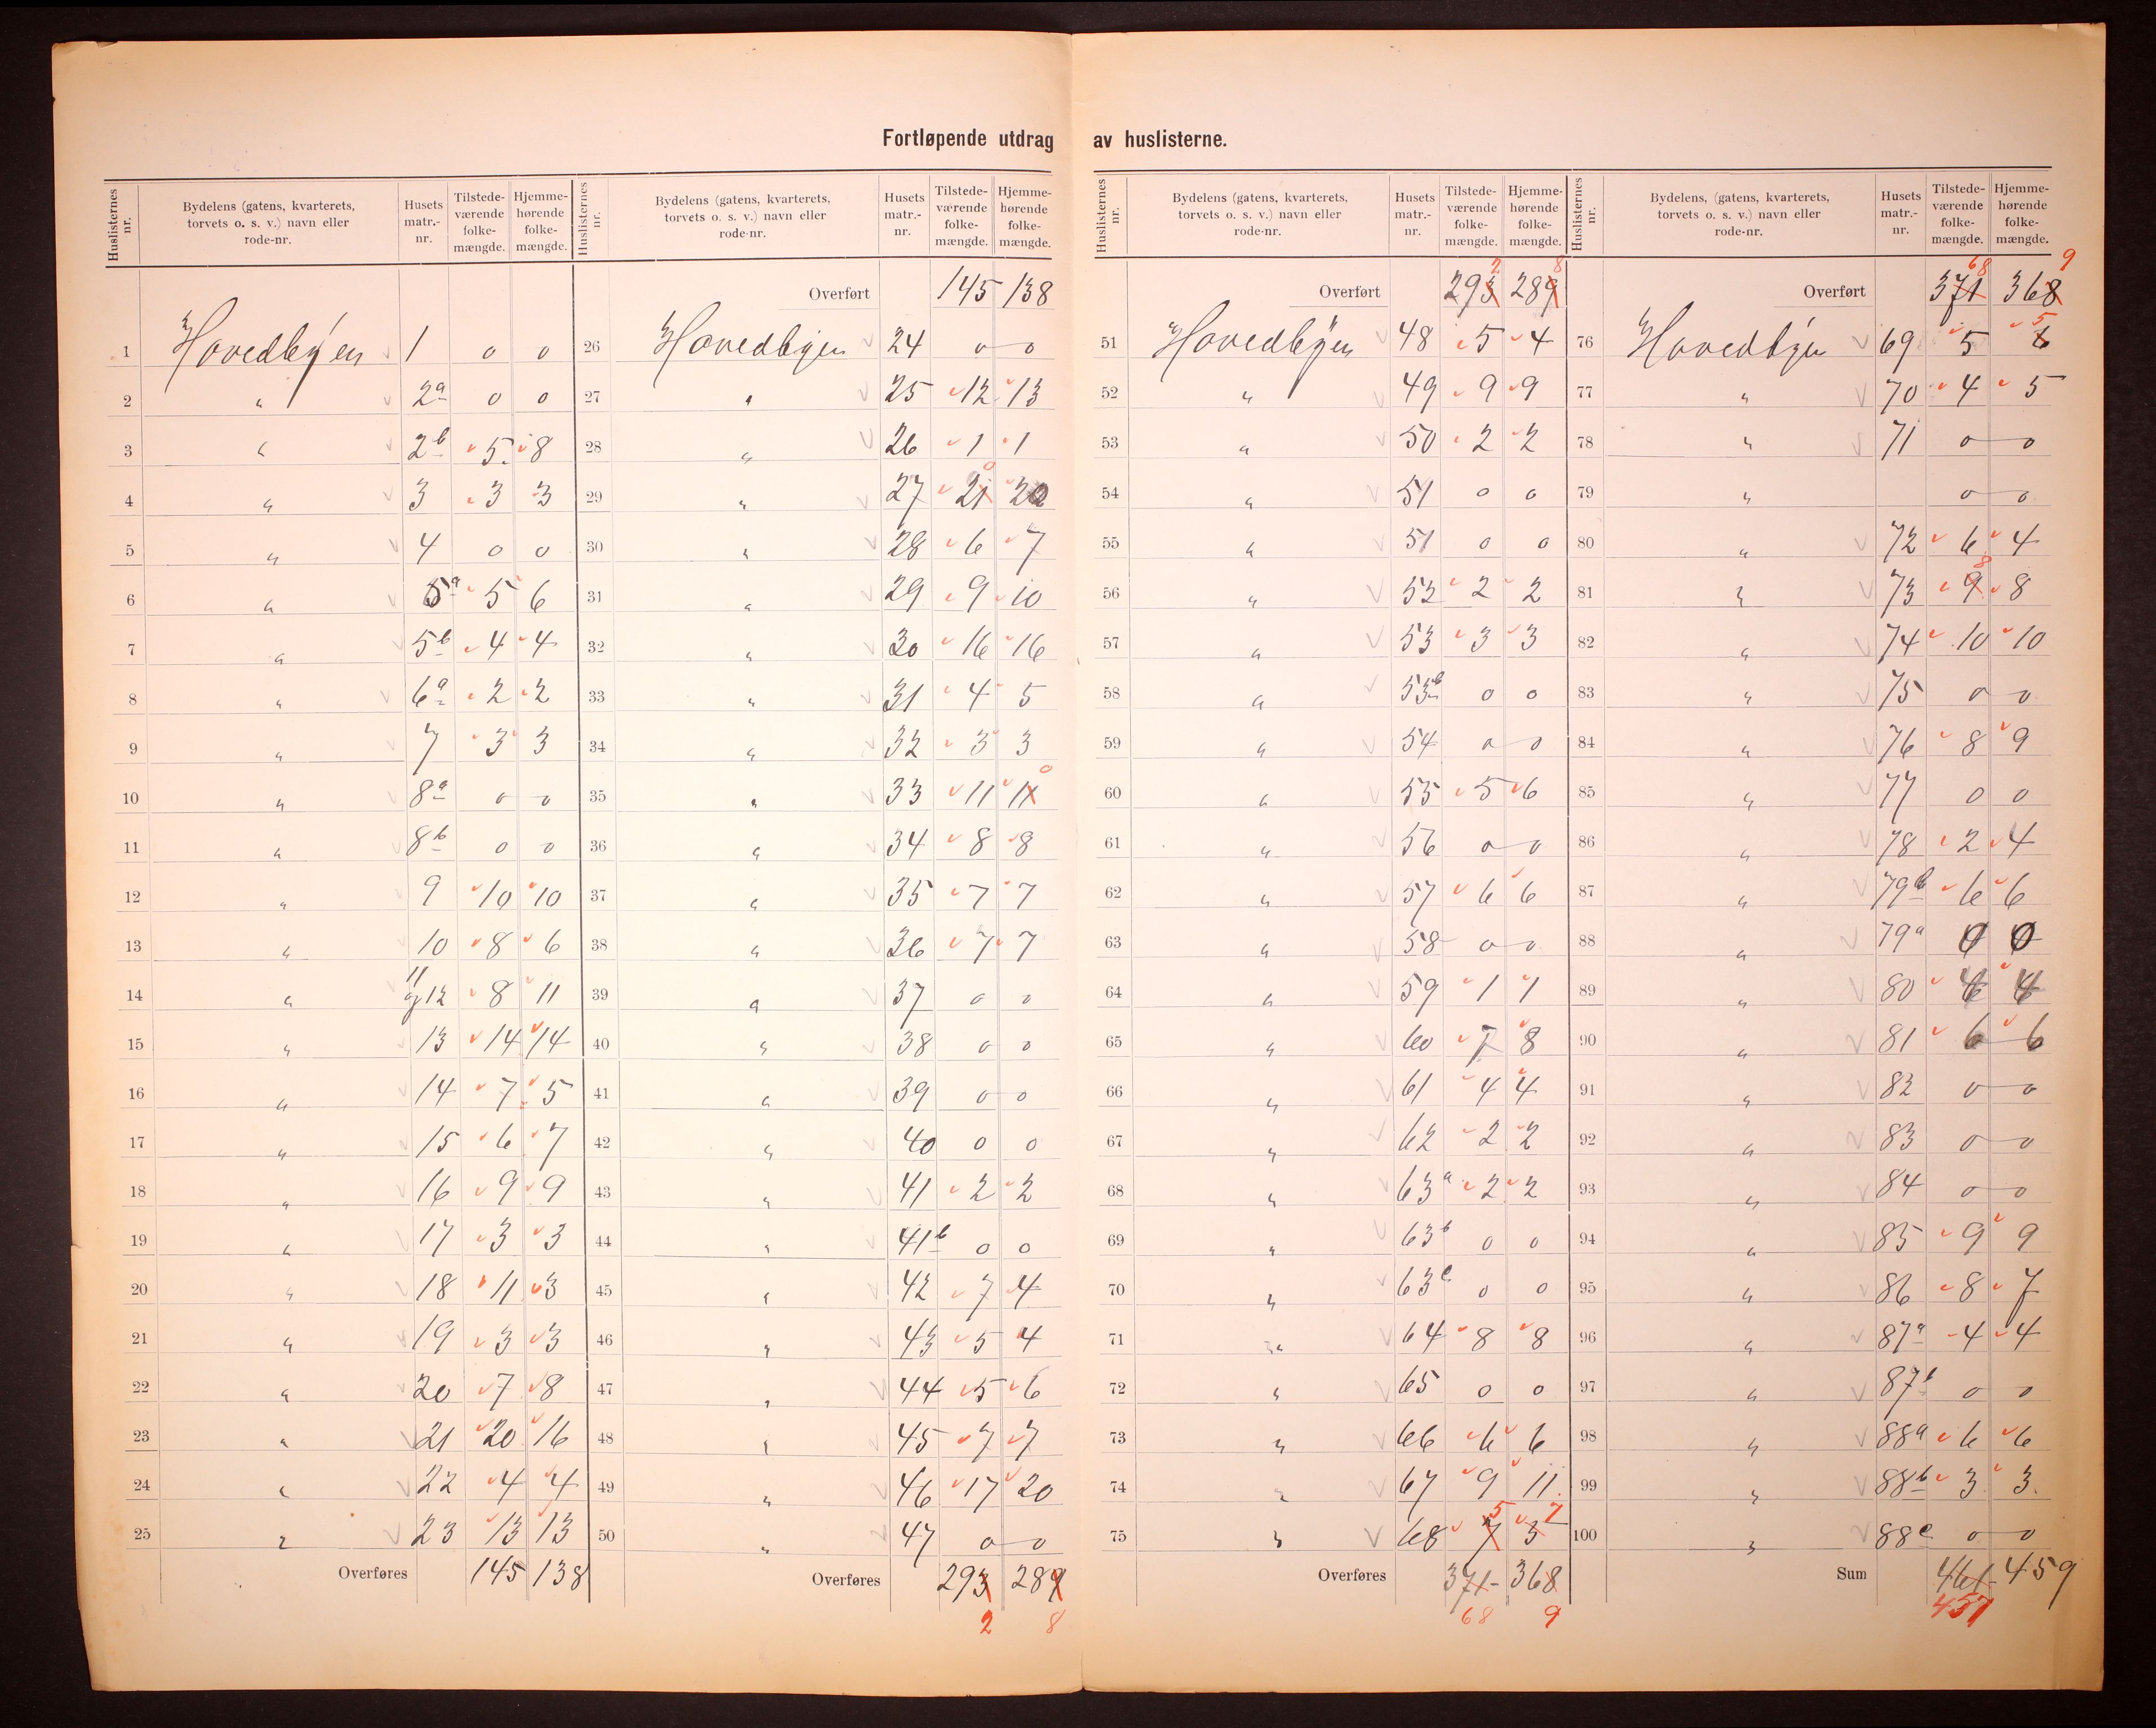 Fortløpende utdrag av huslisterne.
Huslisternes nr. | Bydelens (gatens, kvarterets, torvets o. s. v.) navn eller rode-nr. | Husets matr.-nr. | Tilstede-værende folke-mængde. | Hjemme-hørende folke-mængde.
1 Hovedbyen 1 0 0
2 " 2a 0 0
3 " 2b 5 8
4 " 3 3 3
5 " 4 0 0
6 " 5a 5 6
7 " 5b 4 4
8 " 6a 2 2
9 " 7 3 3
10 " 8a 0 0
11 " 8b 0 0
12 " 9 10 10
13 " 10 8 6
14 " 11 og 12 8 11
15 " 13 14 14
16 " 14 7 5
17 " 15 6 7
18 " 16 9 9
19 " 17 3 3
20 " 18 11 3
21 " 19 3 3
22 " 20 7 8
23 " 21 20 16
24 " 22 4 4
25 " 23 13 13
Overføres 145 138
Huslisternes nr. | Bydelens (gatens, kvarterets, torvets o. s. v.) navn eller rode-nr. | Husets matr.-nr. | Tilstede-værende folke-mængde. | Hjemme-hørende folke-mængde.
Overført 145 138
26 Hovedbyen 24 0 0
27 " 25 12 13
28 " 26 1 1
29 " 27 21 0 20
30 " 28 6 7
31 " 29 9 10
32 " 30 16 16
33 " 31 4 5
34 " 32 3 3
35 " 33 11 11 0
36 " 34 8 8
37 " 35 7 7
38 " 36 7 7
39 " 37 0 0
40 " 38 0 0
41 " 39 0 0
42 " 40 0 0
43 " 41 2 2
44 " 41b 0 0
45 " 42 7 4
46 " 43 5 4
47 " 44 5 6
48 " 45 7 7
49 " 46 17 20
50 " 47 0 0
Overføres 293 289
2 8
Huslisternes nr. | Bydelens (gatens, kvarterets, torvets o. s. v.) navn eller rode-nr. | Husets matr.-nr. | Tilstede-værende folke-mængde. | Hjemme-hørende folke-mængde.
Overført 293 2 289 8
51 Hovedbyen 48 5 4
52 " 49 9 9
53 " 50 2 2
54 " 51 0 0
55 " 51 0 0
56 " 52 2 2
57 " 53 3 3
58 " 53b 0 0
59 " 54 0 0
60 " 55 5 6
61 " 56 0 0
62 " 57 6 6
63 " 58 0 0
64 " 59 1 1
65 " 60 7 8
66 " 61 4 4
67 " 62 2 2
68 " 63a 2 2
69 " 63b 0 0
70 " 63c 0 0
71 " 64 8 8
72 " 65 0 0
73 " 66 6 6
74 " 67 9 11
75 " 68 7 5 5 7
Overføres 371 368
68 9
Huslisternes nr. | Bydelens (gatens, kvarterets, torvets o. s. v.) navn eller rode-nr. | Husets matr.-nr. | Tilstede-værende folke-mængde. | Hjemme-hørende folke-mængde.
Overført 371 68 368 9
76 Hovedbyen 69 5 6 5
77 " 70 4 5
78 " 71 0 0
79 " 0 0
80 " 72 6 4
81 " 73 9 8 8
82 " 74 10 10
83 " 75 0 0
84 " 76 8 9
85 " 77 0 0
86 " 78 2 4
87 " 79b 6 6
88 " 79a 0 0
89 " 80 4 4
90 " 81 6 6
91 " 82 0 0
92 " 83 0 0
93 " 84 0 0
94 " 85 9 9
95 " 86 8 7
96 " 87a 4 4
97 " 87b 0 0
98 " 88a 6 6
99 " 88b 3 3
100 " 88c 0 0
Sum 461 459
457